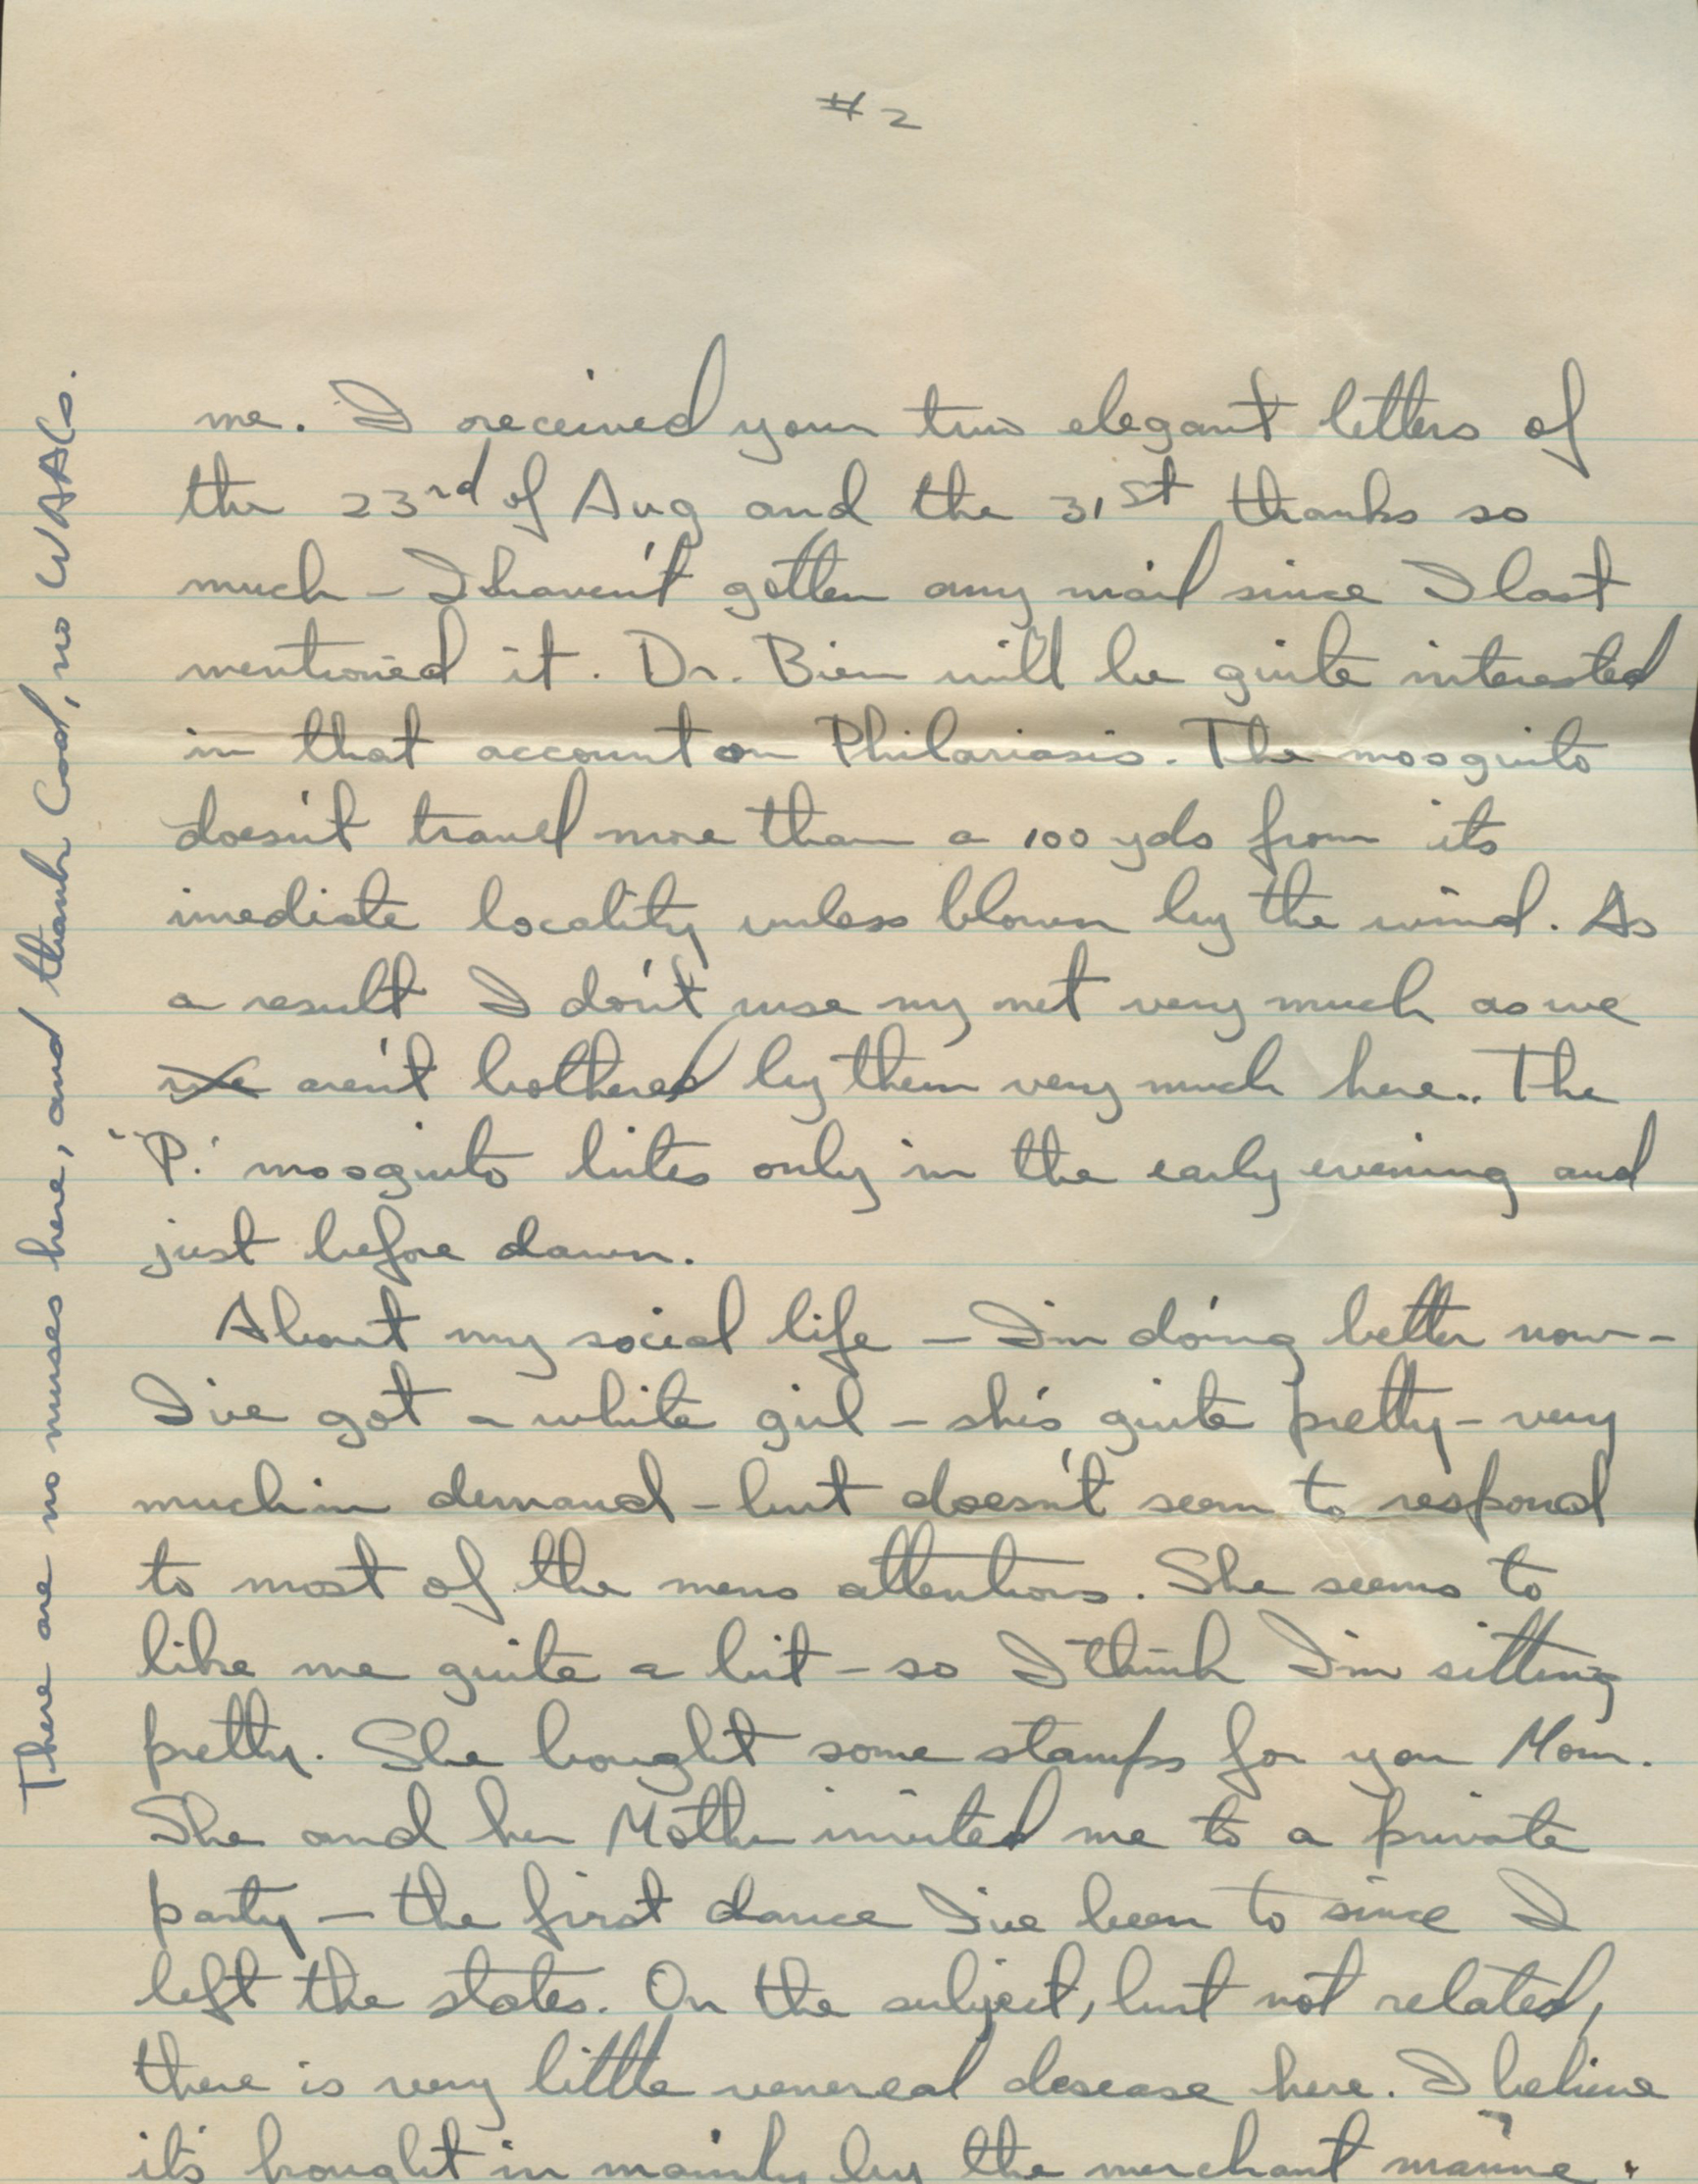 #2
me. I received your two elegant letters of
the 23rd of Aug and the 31st thanks so
much – I haven't gotten any mail since I last
mentioned it. Dr. Bien will be quite interested
in that account on Philariasis. The mosquito
doesn't travel more than a 100 yds from its
imediate locality unless blown by the wind. As
a result I don't use my net very much as we
we aren't bothered by them very much here.. The
'P.' mosquito bites only in the early evening and
just before dawn.
About my social life – I'm doing better now –
I've got a white girl – she's quite pretty – very
much in demand – but doesn't seem to respond
to most of the mens attentions. She seems to
like me quite a bit – so I think I'm sitting
pretty. She bought some stamps for you Mom.
She and her Mother invited me to a private
party – the first dance I've been to since I
left the states. On the subject, but not related,
there is very little venereal desease here. I believe
it's brought in mainly by the merchant marine.
There are no nurses here, and thank God, no WAACs.